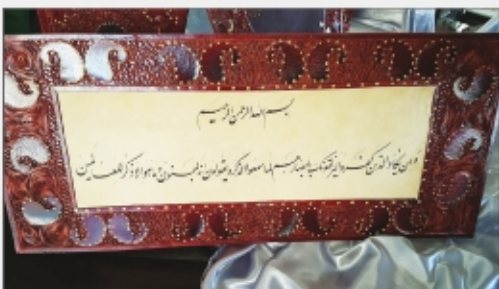 بسم الله الرحمن الرحیم
و ان یکاد الذین کفروا لیزلقونک بابصارهم لما سمعوا الذکر و یقولون انه لمجنون و ما هو الا ذکر للعالمین